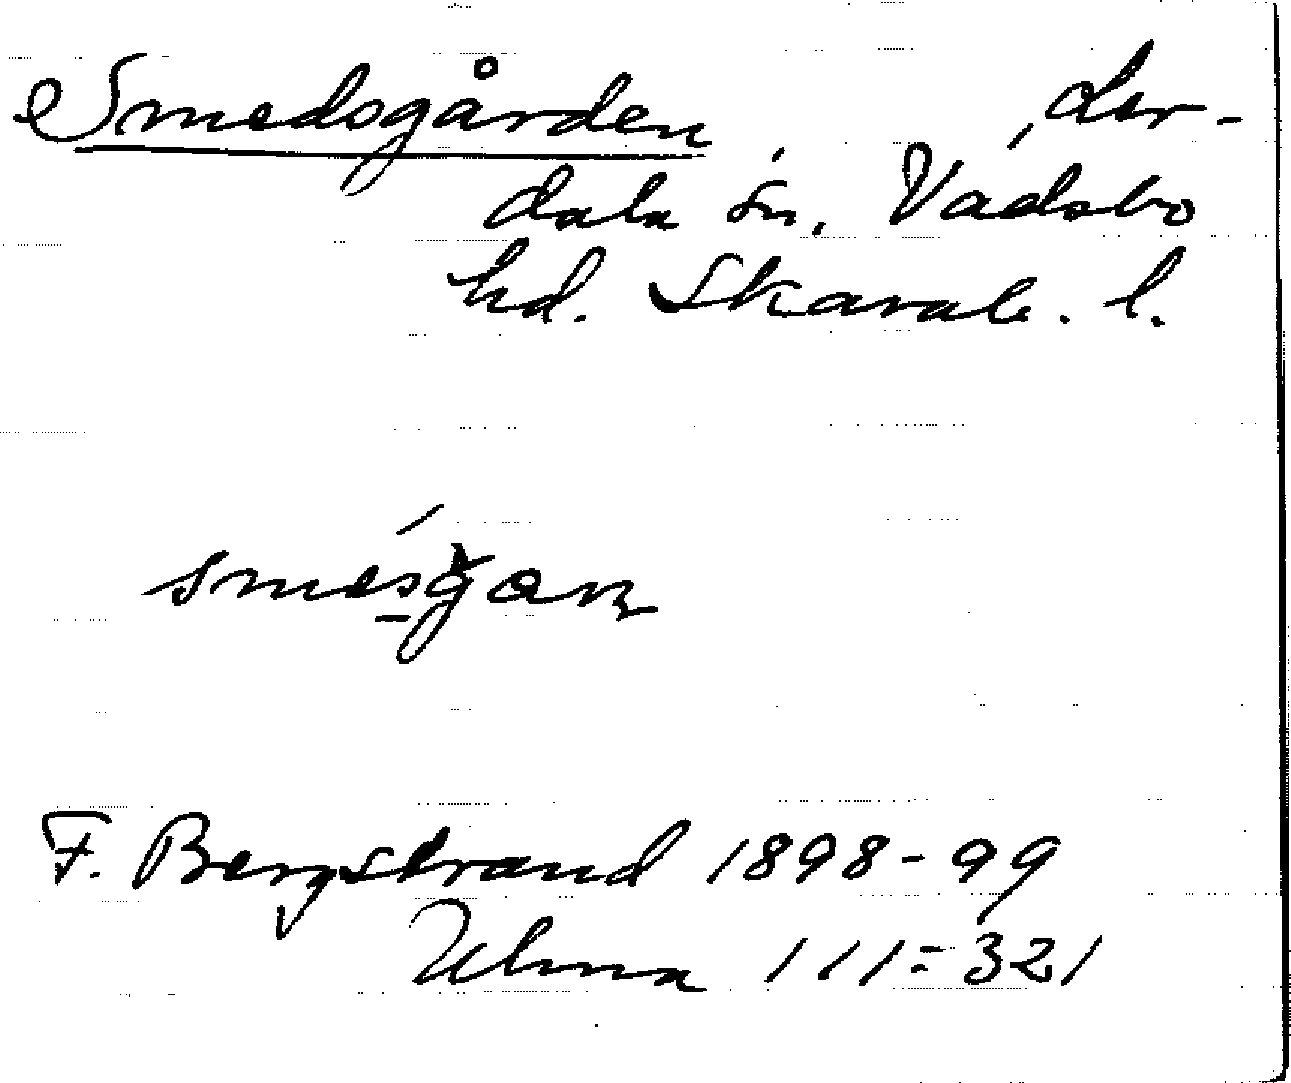 Smedsgården, Ler-
dala sn, Vadsbo
hd. Skarab. l.
F. Bergstrand 1898-99
Ulma 111:321